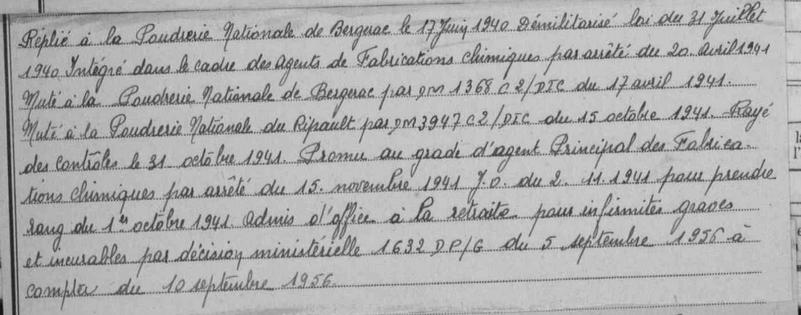 Réplié à la Poudrerie Nationale de Bergerac le 17 Juin 1940 Démilitarisé loi du 31 Juillet
1940 Intégré dans le cadre des Agents de Fabrications chimiques par arrêté du 20 Avril 1941
Muté à la Poudrerie Nationale de Bergerac par DM 1368 C2/DTC du 17 avril 1941.
Muté à la Poudrerie Nationale du Ripault par DM 3947 C2/DTC du 15 octobre 1941. Rayé
des contrôles le 31 octobre 1941. Promu au grade d'agent Principal des Fabrica-
tions chimiques par arrêté du 15. novembre 1941 J.O. du 2. 11 1941 pour prendre
rang du 1er octobre 1941. Admis d'office à la retraite pour infirmités graves
et incurables par décision ministérielle 1632 DP/G du 5 septembre 1956 à
compter du 10 septembre 1956.